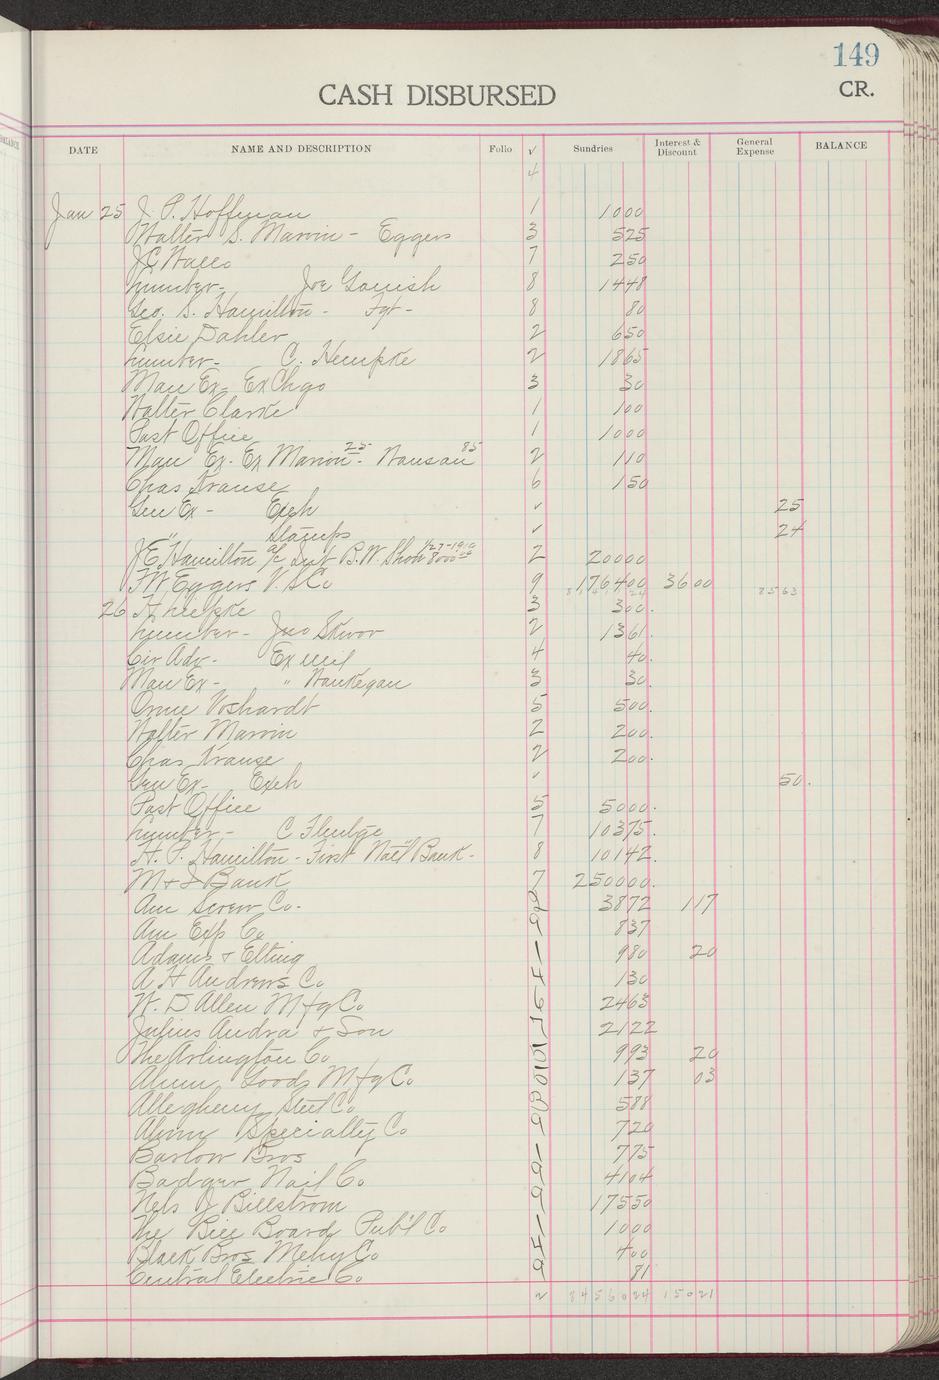 149
CASH DISBURSED
CR.
DATE NAME AND DESCRIPTION Folio √ Sundries Interest & Discount General Expense BALANCE
4
Jan 25 J. P. Hoffman 1 1000
Walter S. Marvin - Eggers 3 525
J C 7 250
Lumber - Joe 8 1448
Geo. S. Hamilton - Fgt - 8 80
Elsie Dahler 2 650
Lumber - C. Hempke 2 1865
Man Ex - Ex Chgo 3 30
Walter Clarke 1 100
Post Office 1 1000
Man Ex - Ex Marion 25 - Wausau 85 2 110
Chas Krause 6 150
Gen Ex - Exch ✓ 25
" Stamps ✓ 24
J E Hamilton a/c Int B.W. Show 1/27-1910 8000 00 2 20000
FW Eggers V. S Co 9 176400 3600
8563
26 3 300.
Lumber - Jno Skvor 2 1361.
Cir Adv - Ex Mil 4 40.
Man Ex - " Waukegan 3 30.
Orme Voshardt 5 500.
Walter Marvin 2 200.
Chas Krause 2 200.
Gen Ex - Exch ✓ 50.
Post Office 5 5000.
Lumber - C 7 10375.
H. P. Hamilton - First Nat'l Bank - 8 10142.
M & I Bank 7 250000.
Am Screw Co. 3872 117
Am Exp Co 9 837
Adams & Elting 1 980 20
A H Andrews Co 130
W. D Allen Mfg Co 6 2463
Julius Andra & Son 2122
The Arlington Co 993 20
Alum Goods Mfg Co 137 03
Allegheny Steel Co 588
Alum Specialty Co 9 720
Barlow Bros 1 775
Badger Nail Co 9 4104
Nels J Billstrom 9 17550
The Bill Board Publ Co 1 1000
Black Bros Mchy Co 400
Central Electric Co 9 81
2 8456024 15021